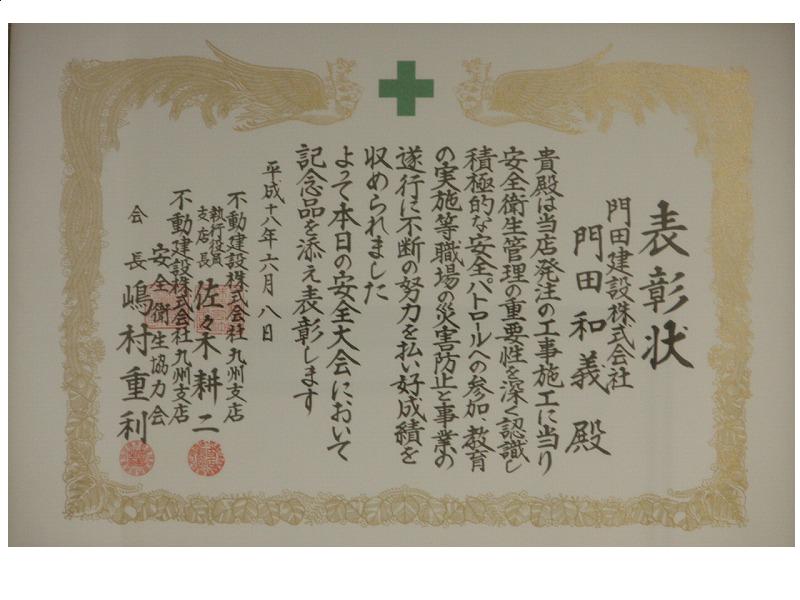 表彰状
門田建設株式会社
門田和義 殿
貴殿は当店発注の工事施工に当り
安全衛生管理の重要性を深く認識し
積極的な安全パトロールへの参加、教育
の実施等職場の災害防止と事業の
遂行に不断の努力を払い好成績を
収められました
よって本日の安全大会において
記念品を添え表彰します
平成十八年六月八日
不動建設株式会社 九州支店
執行役員
支店長 佐々木耕二
不動建設株式会社 九州支店
安全衛生協力会
会長 嶋村重利